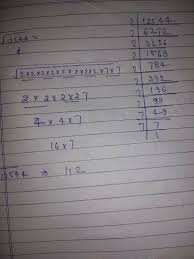 √12544 =
√2×2×2×2×2×2×2×2×7×7
2 × 2 × 2 × 2 7
4 × 4 × 7
16 × 7
√12544 ⇒ 112
2 | 12544
2 | 6272
2 | 3136
2 | 1568
2 | 784
2 | 392
2 | 196
2 | 98
7 | 49
7 | 7
1